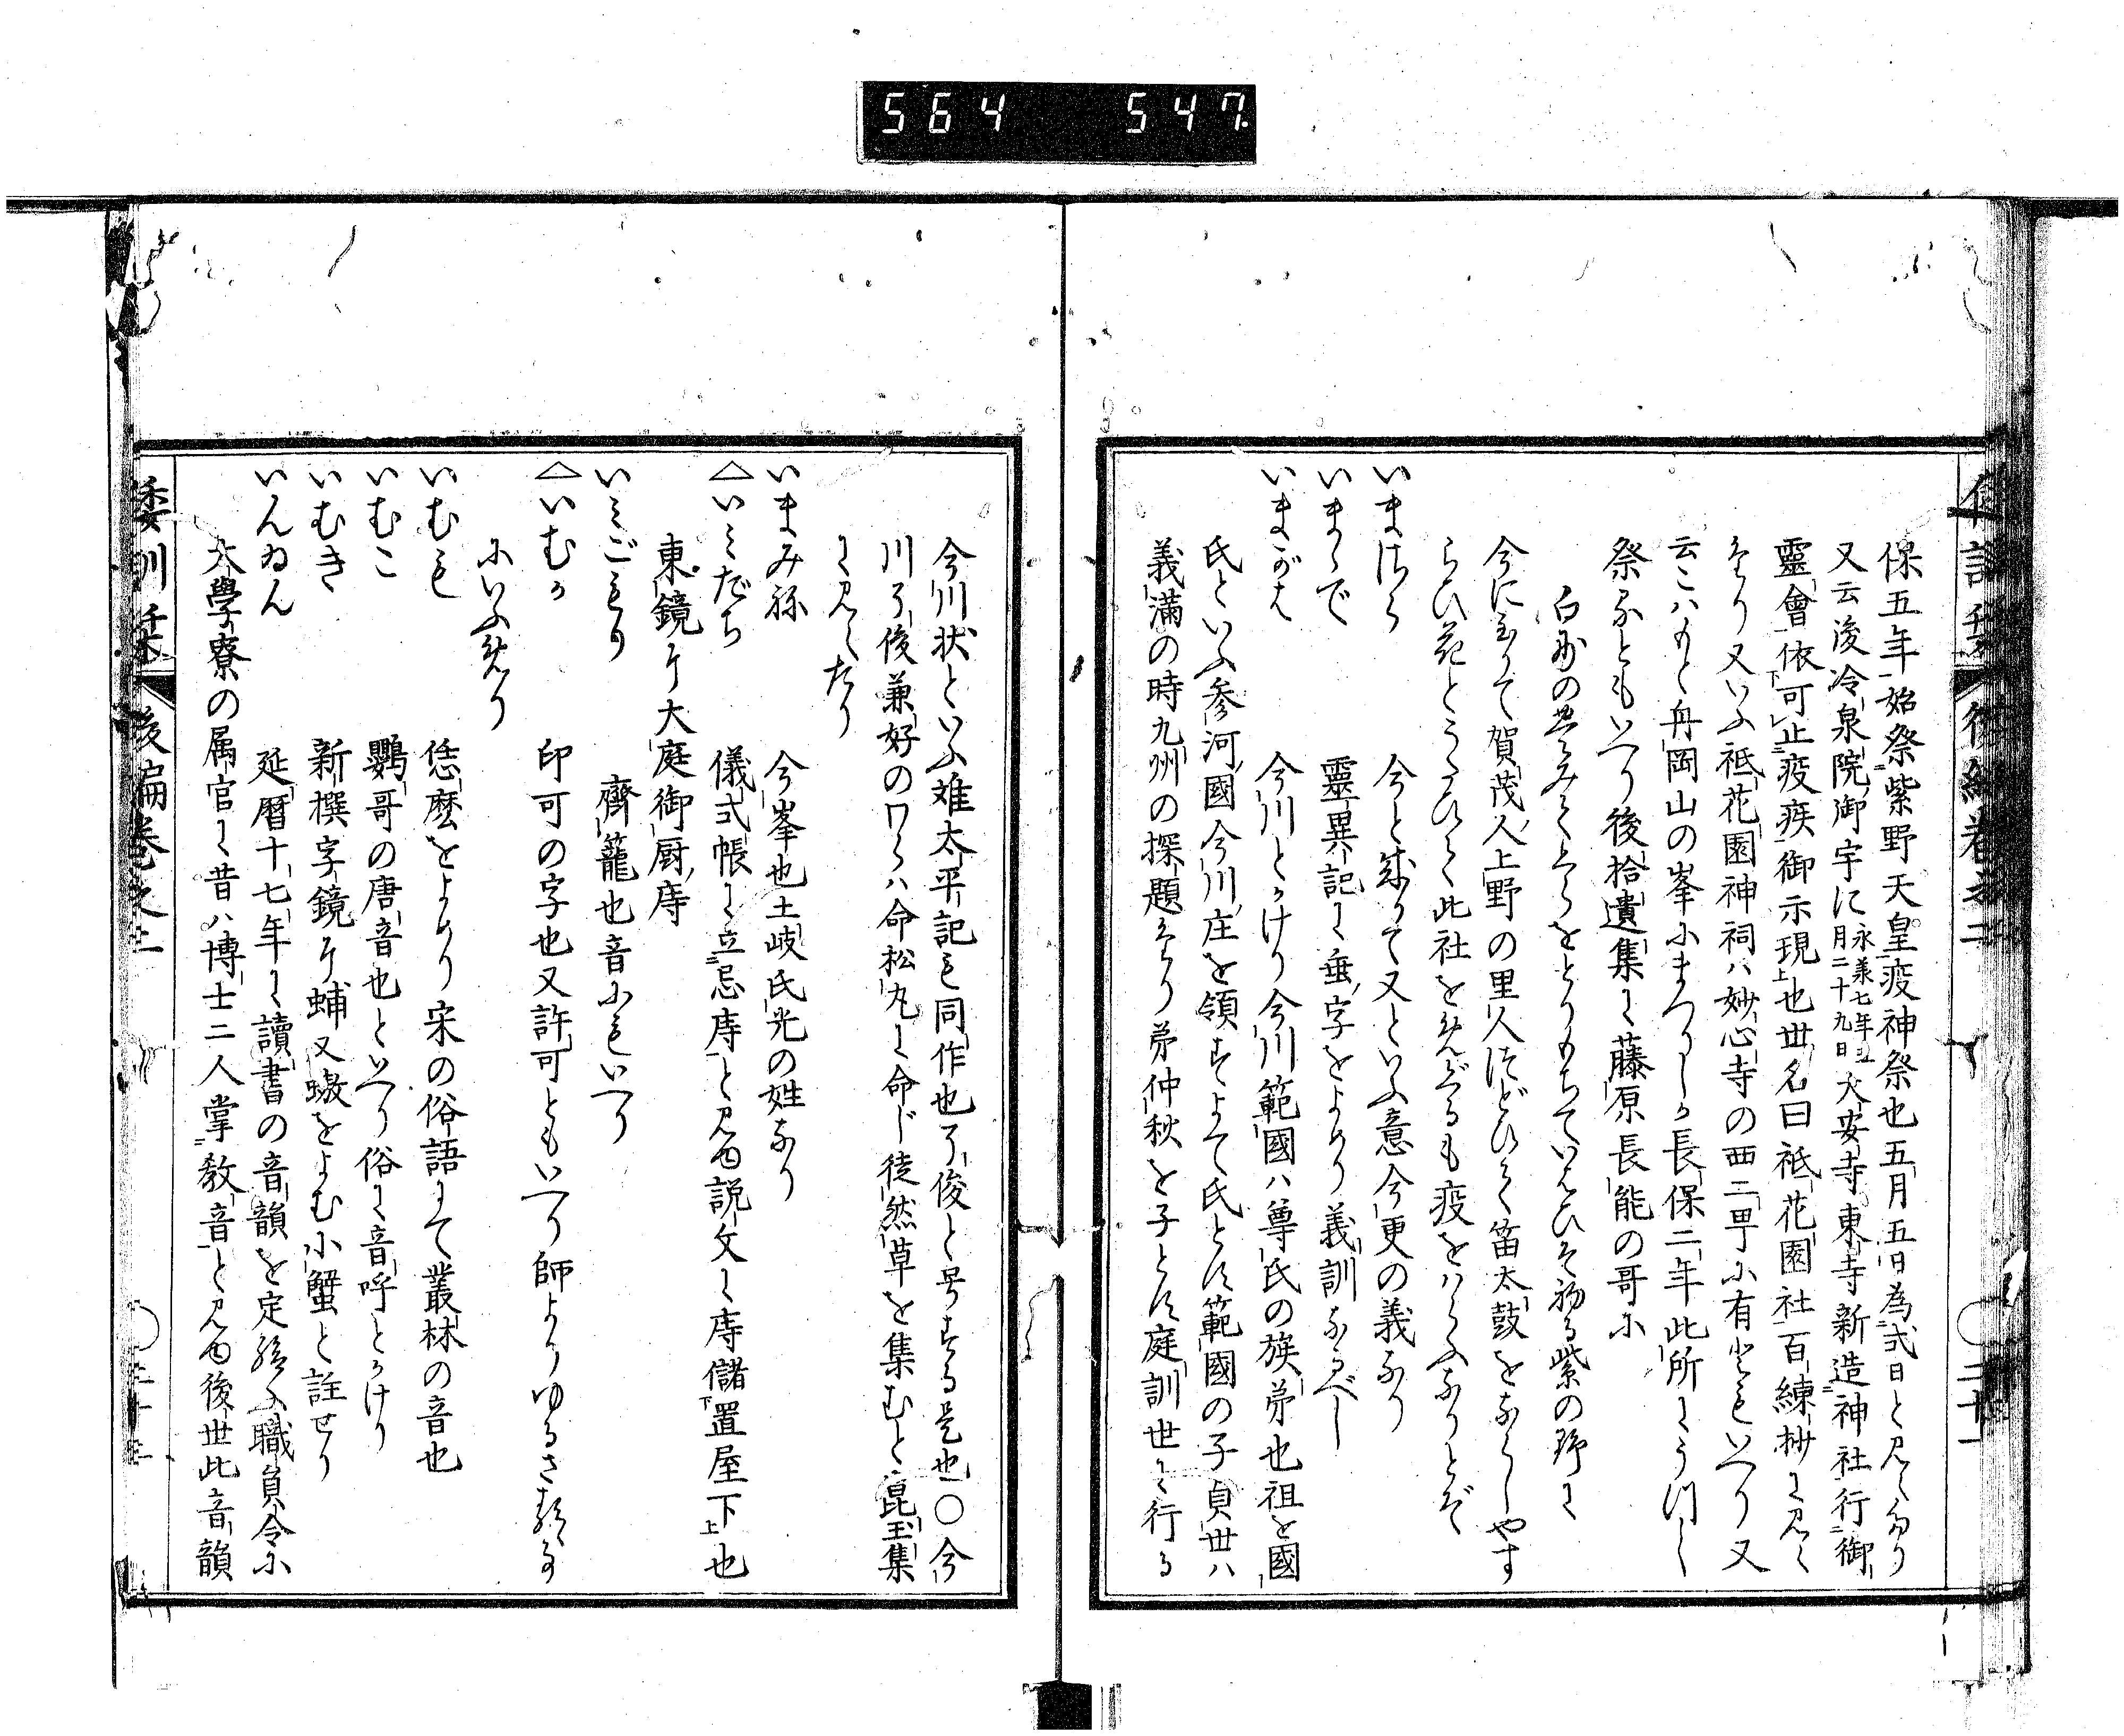 564 547
倭訓栞 後編巻之二 ○二十一
保五年始祭紫野天皇疫神祭也五月五日為式日と見えたり
又云後冷泉院御宇に永義七年五月二十九日大安寺東寺新造神社行御
靈會依可止疫疾御示現也世名曰祗花園社百練抄に見え
たり又いふ祗花園神祠ハ妙心寺の西二甼に有ともいへり又
云こハもと舟岡山の峯にまつりしか長保二年此所にうつし
祭るともいへり後拾遺集に藤原長能の哥に
白妙の豊みてくらをとりもちていはひそ初る紫の野に
今に至りて賀茂人上野の里人つどひて笛太鼓をならしやす
らひ花とうたひて此社をめぐるも疫をはらふなりとぞ
いまさら 今と成りて又といふ意今更の義なり
いまゝで 靈異記に垂字をよめり義訓なるべし
いまがは 今川とかけり今川範國ハ尊氏の族弟也祖を國
氏といふ参河國今川庄を領すよて氏とす範國の子貞世ハ
義滿の時九州の探題たり弟仲秋を子とす庭訓世に行る
今川状といふ難太平記も同作也了俊と号する是也○今
川了俊兼好のワらハ命松丸に命じ徒然草を集むと崑玉集
に見えたり
いまみね 今峯也土岐氏光の姓なり
△いみだち 儀式帳に立忌庤と見ゆ説文に庤儲置屋下也
東鏡に大庭御厨庤
いミごもり 齊籠也音にもいへり
△いむか 印可の字也又許可ともいへり師よりゆるさるゝ事
にいふめり
いむも 恁麽をよめり宋の俗語にて叢林の音也
いむこ 鸚哥の唐音也といへり俗に音呼とかけり
いむき 新撰字鏡に蜅又蝬をよむ小蟹と註せり
いんゐん 延暦十七年に讀書の音韻を定給ふ職員令に
大學寮の属官に昔ハ博士二人掌教音と見ゆ後世此音韻
倭訓栞 後編巻之二